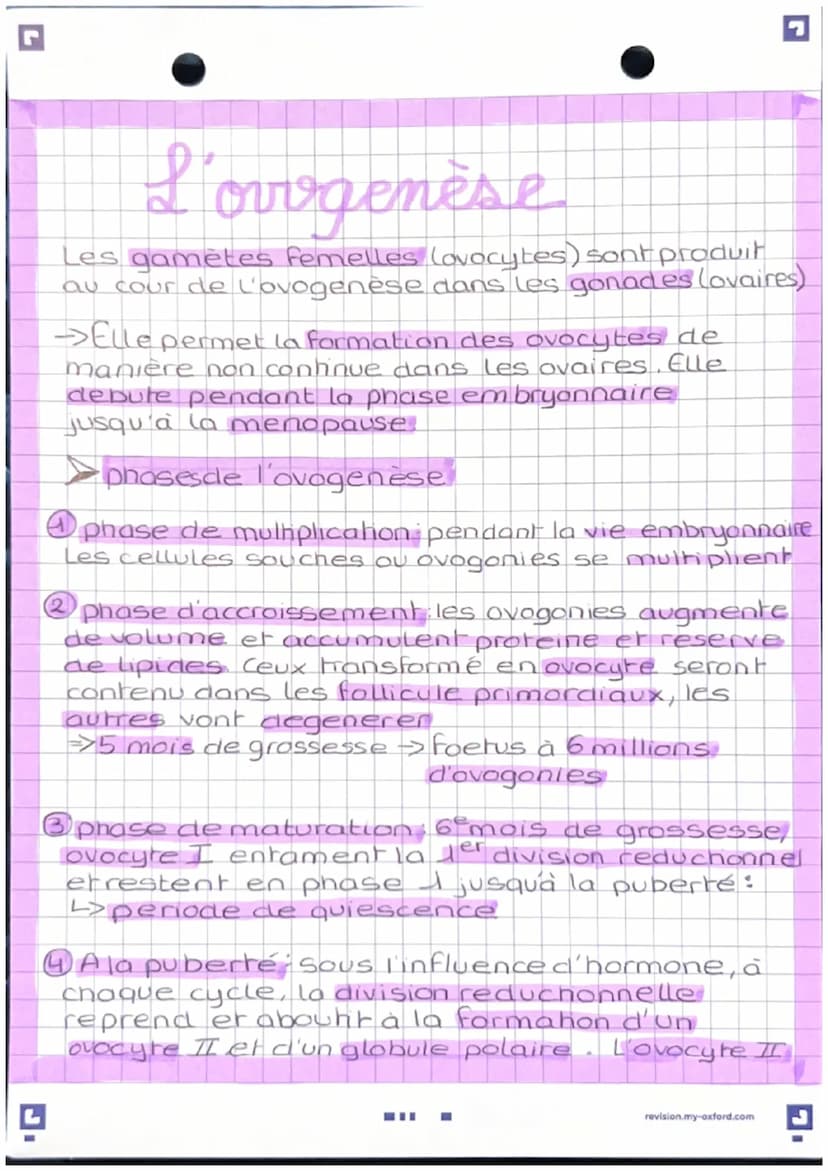 L'ovogenèse
Les gamètes femelles (ovocytes) sont produit
au cour de l'ovogenèse dans les gonades (ovaires)
->Elle permet la formation des ovocytes de
manière non continue dans les ovaires. Elle
debute pendant la phase embryonnaire
jusqu'à la menopause
➤ phases de l'ovogenèse
① phase de multiplication: pendant la vie embryonnaire
Les cellules souches ou ovogonies se multiplient
② phase d'accroissement: les ovogonies augmente
de volume et accumulent proteine et reserve
de lipides. Ceux transformé en ovocyte seront
contenu dans les follicule primordiaux, les
autres vont degenerer
=>5 mois de grossesse -> Foetus à 6 millions
d'ovogonies
③ phase de maturation: 6e mois de grossesse,
ovocyte I entament la 1er division reductionnel
et restent en phase 1 jusqu'à la puberté :
↳ periode de quiescence
④ A la puberté: sous l'influence d'hormone, à
chaque cycle, la division reductionnelle
reprend et aboutit à la formation d'un
ovocyte II et d'un globule polaire. L'ovocyte II
revision.my-oxford.com